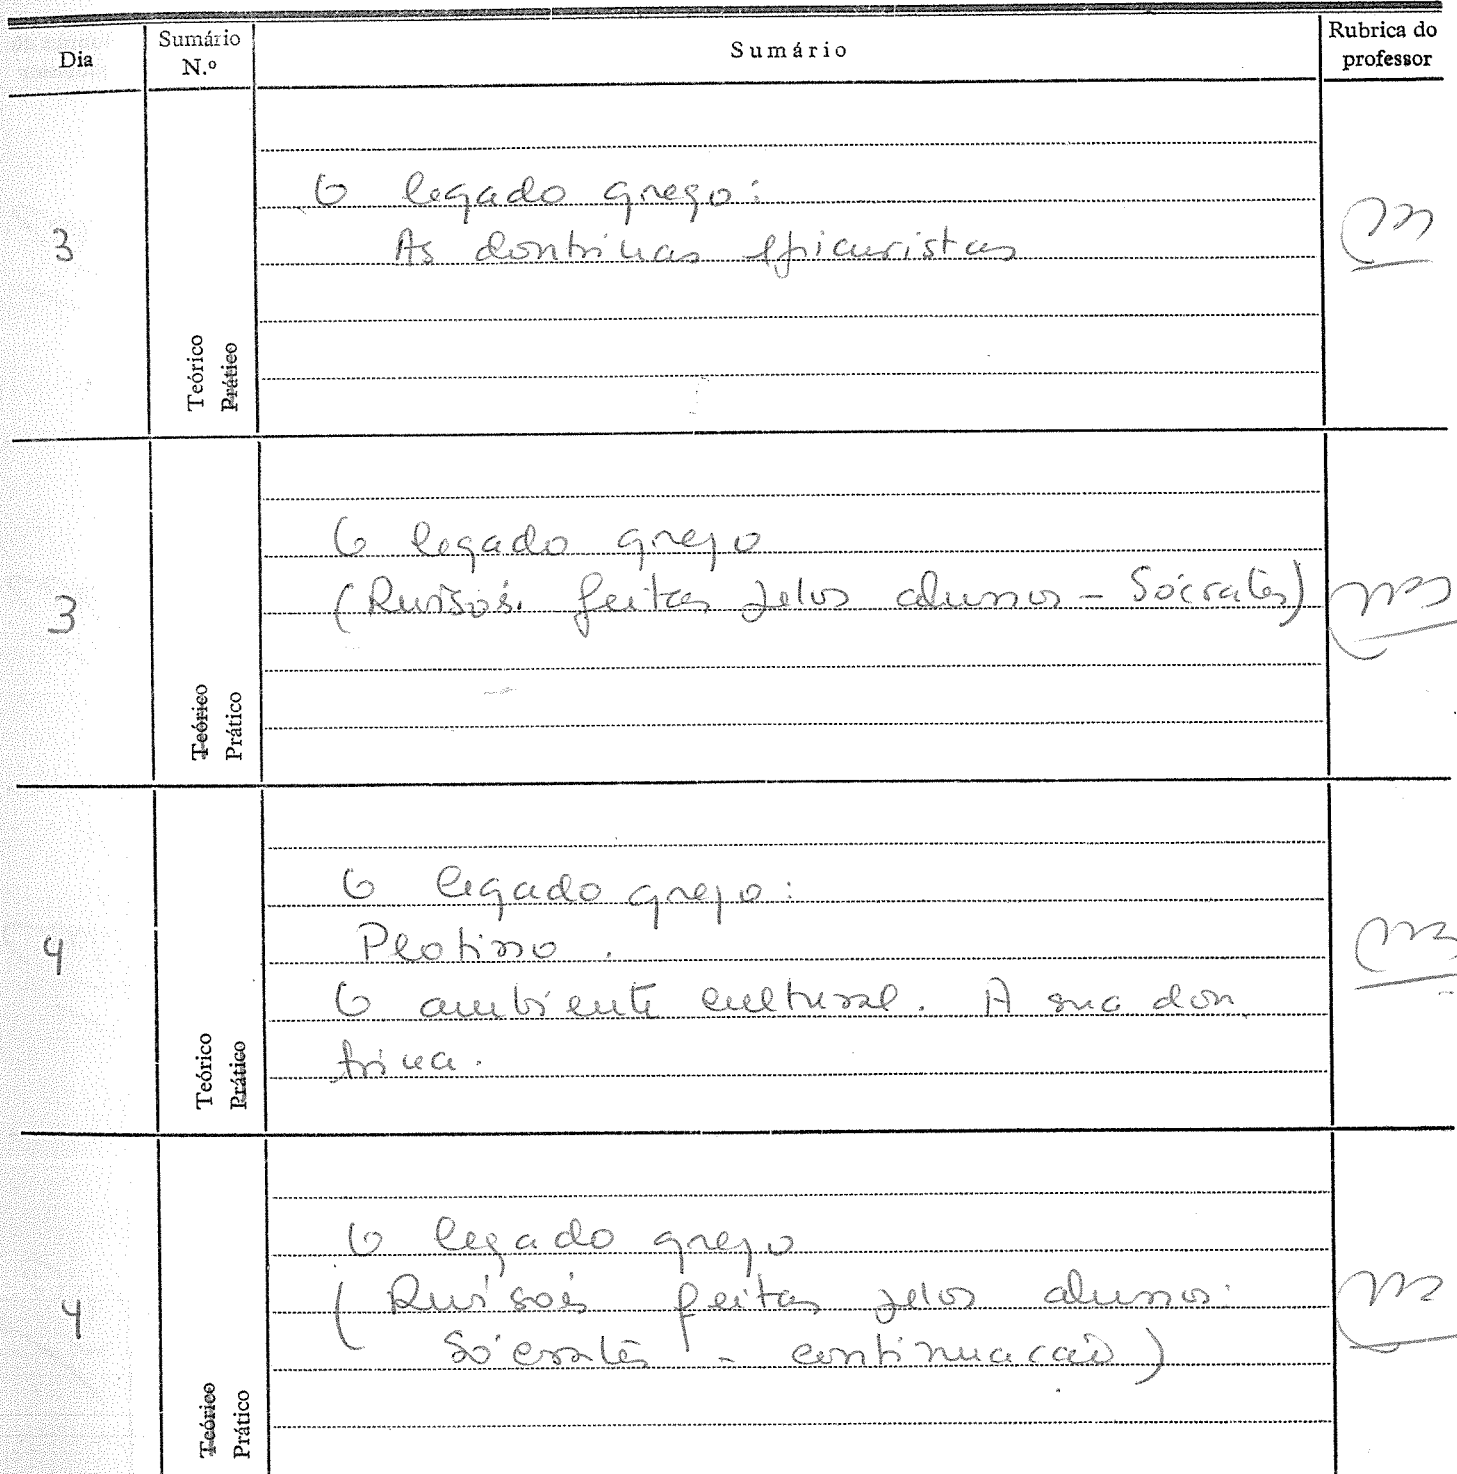 Dia
Sumário
N.º
Sumário
Rubrica do
professor
3
Teórico
Prático
O legado grego:
As doutrinas epicuristas
3
Teórico
Prático
O legado grego
(Revisões feitas pelos alunos – Sócrates)
4
Teórico
Prático
O legado grego:
Plotino.
O ambiente cultural. A sua dou
trina.
4
Teórico
Prático
O legado grego
(Revisões feitas pelos alunos:
Sócrates – continuação)